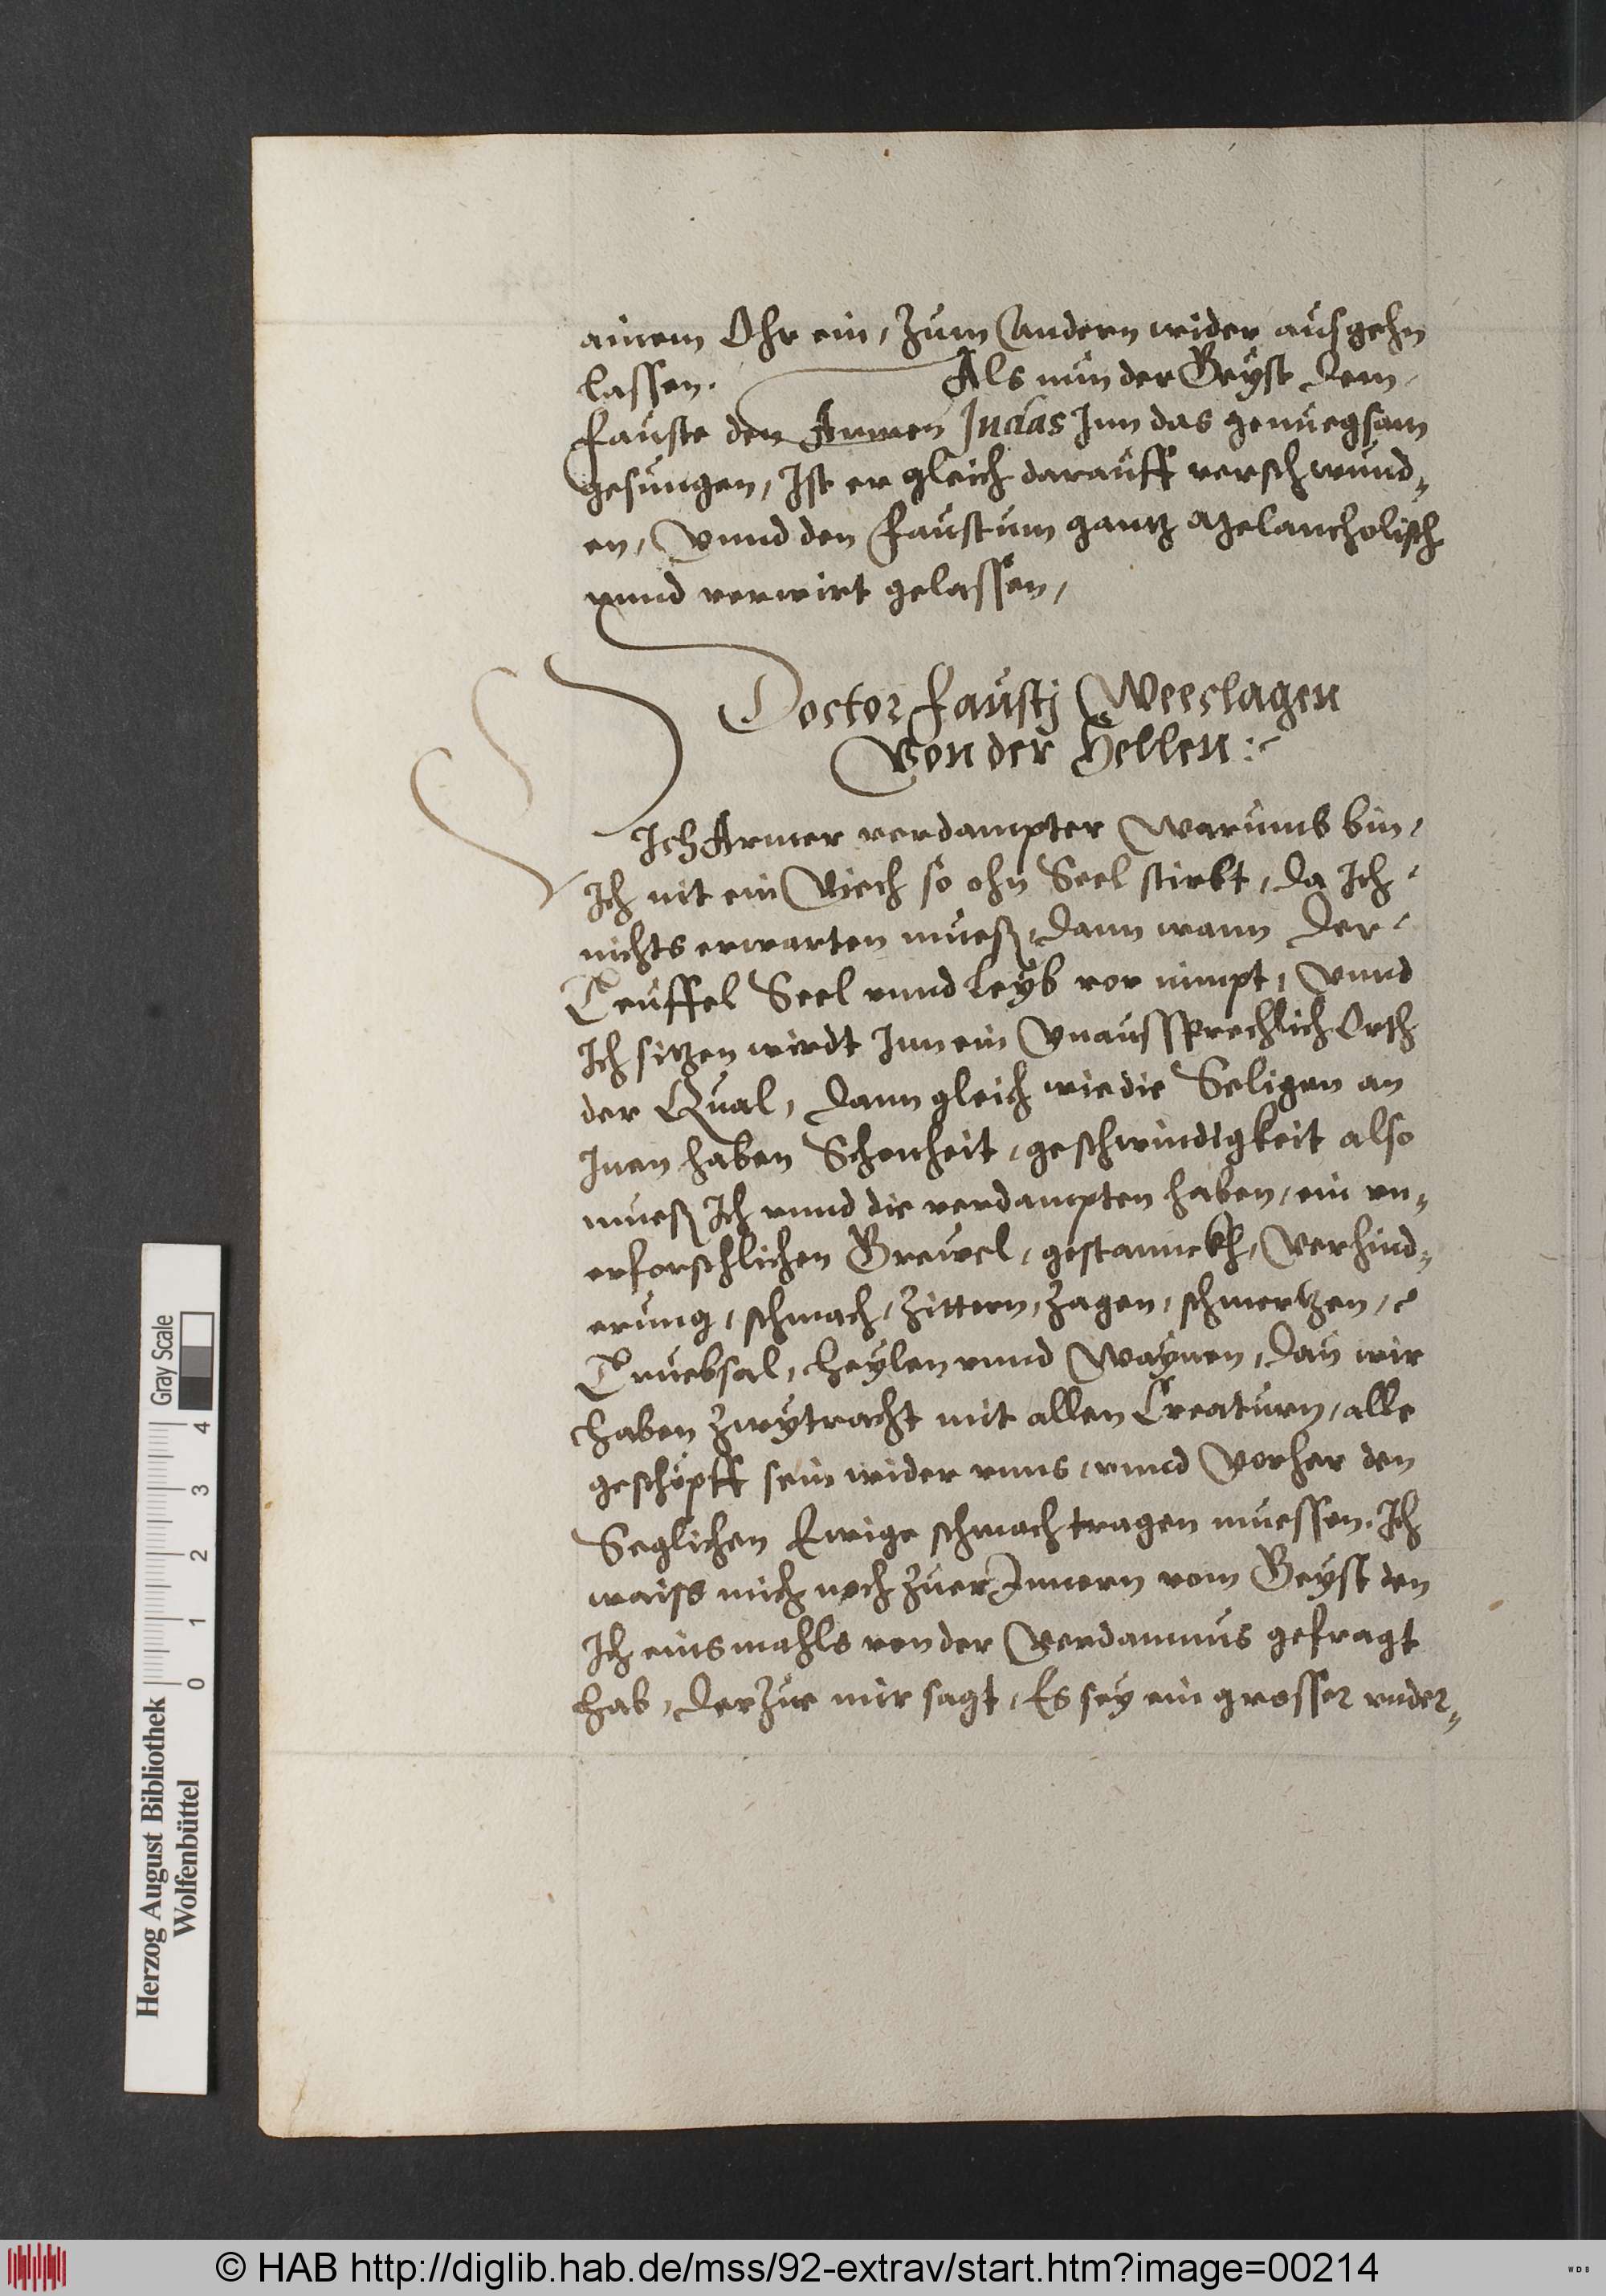 ainem Ohr ein, Zum Andern wider ausgehn
lassen. Als nun der Geyst dem
Fauste den Armen Judas Inn das genuegsam
gesungen, Ist er gleich darauff verschwund„
en, Vnnd den Faustum gantz Melancholisch
vnnd verwirt gelassen,
Doctor Faustj Weeclagen
Von der Hellen:
Ich Armer verdampter Warumb bin
Ich nit ein Viech so ohn Seel stirbt, da Ich
nichts erwarten mueß, dann wann der
Teuffel Seel vnnd Leyb vor nimpt, Vnnd
Ich sitzen wirdt Inn ein Vnaussprechlich Orth
der Qual, dann gleich wie die Seligen an
Inen haben Schenheit, geschwindigkeit also
mueß Ich vnnd die verdampten haben, ein vn„
erforschlichen Grewel, gestannckh, Verhind„
erung, schmach, Zittern, Zagen, schmertzen,
Truebsal, Heylen vnnd Waynen, dan wir
haben Zwytracht mit allen Creaturn, alle
geschöpff sein wider vnns, vnnd Vorher den
Seglichen Ewige schmach tragen muessen. Ich
waiss mich noch Zuer Innern vom Geyst den
Ich einsmahls von der Verdamnus gefragt
hab, der Zue mir sagt, Es sey ein grosser vnder„
Herzog August Bibliothek
Wolfenbüttel
Gray Scale
0 1 2 3 4
© HAB http://diglib.hab.de/mss/92-extrav/start.htm?image=00214
WDB